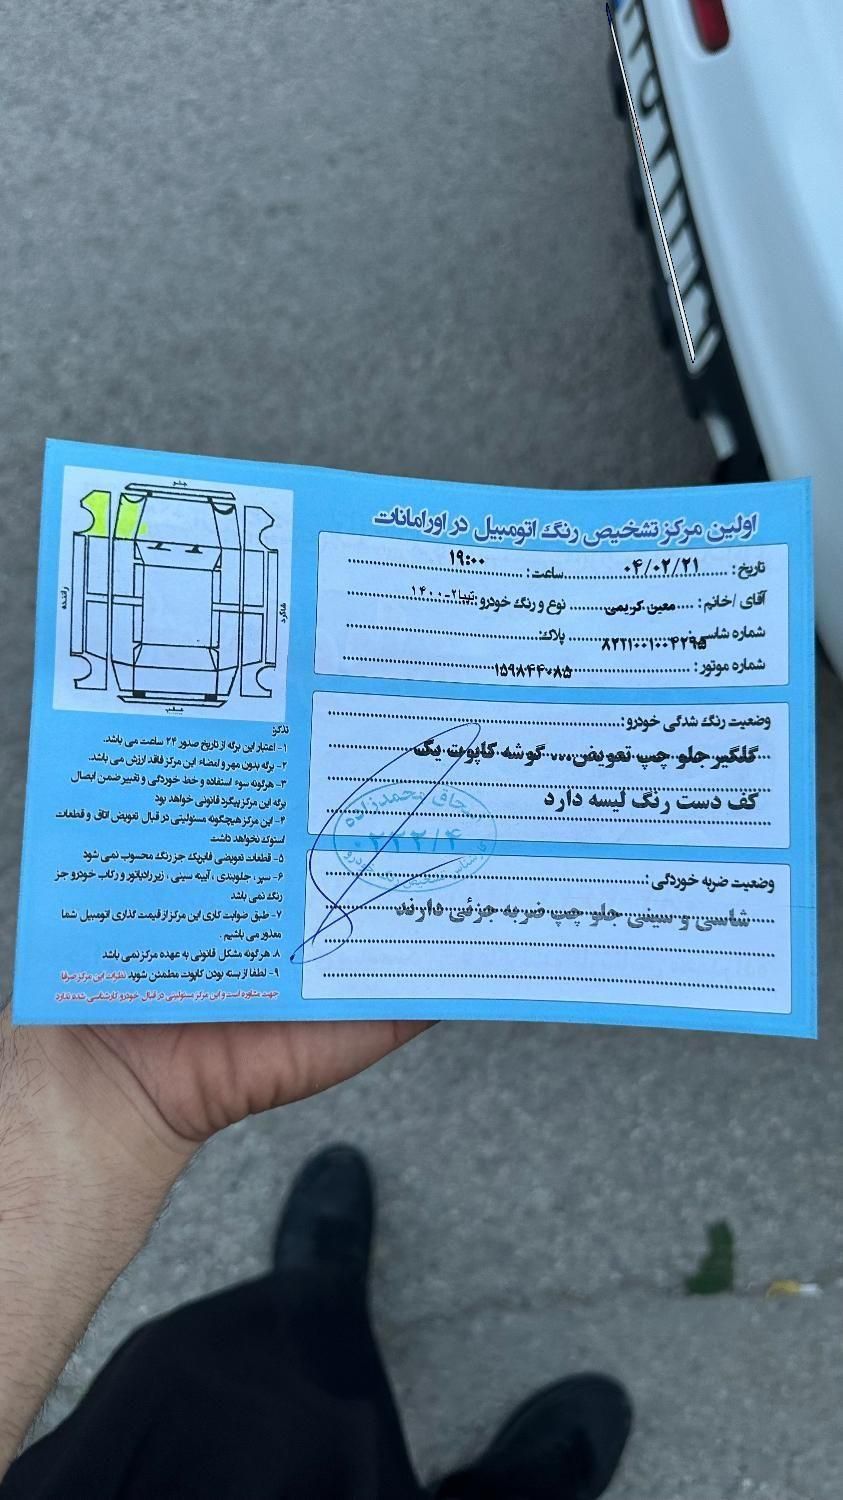 اولین مرکز تشخیص رنگ اتومبیل در اورامانات
تاریخ: ۰۴/۰۲/۲۱ ساعت: ۱۹:۰۰
آقای /خانم: معین کریمی نوع و رنگ خودرو: تیبا۲-۱۴۰۰
شماره شاسی: ۸۲۲۱۰۰۱۰۰۴۲۹۵ پلاک:
شماره موتور: ۱۵۹۸۴۴۰۸۵
وضعیت رنگ شدگی خودرو:
گلگیر جلو چپ تعویض... گوشه کاپوت یک
کف دست رنگ لیسه دارد
وضعیت ضربه خوردگی:
شاسی و سینی جلو چپ ضربه جزئی دارند
محمدزاده
۰۲۳۲/۴
جلو
راننده
شاگرد
عقب
تذکر
۱- اعتبار این برگه از تاریخ صدور ۲۴ ساعت می باشد.
۲- برگه بدون مهر و امضاء این مرکز فاقد ارزش می باشد.
۳- هرگونه سوء استفاده و خط خوردگی و تغییر ضمن ابطال
برگه این مرکز پیگرد قانونی خواهد بود
۴- این مرکز هیچگونه مسئولیتی در قبال تعویض اتاق و قطعات
استوک نخواهد داشت
۵- قطعات تعویضی فابریک جز رنگ محسوب نمی شود
۶- سپر، جلوبندی، آیینه سینی، زیر رادیاتور و رکاب خودرو جز
رنگ نمی باشد
۷- طبق ضوابت کاری این مرکز از قیمت گذاری اتومبیل شما
معذور می باشیم.
۸. هرگونه مشکل قانونی به عهده مرکز نمی باشد
۹- لطفا از بسته بودن کاپوت مطمئن شوید نظریات این مرکز صرفا
جهت مشاوره است و این مرکز مسئولیتی در قبال خودرو کارشناسی شده ندارد